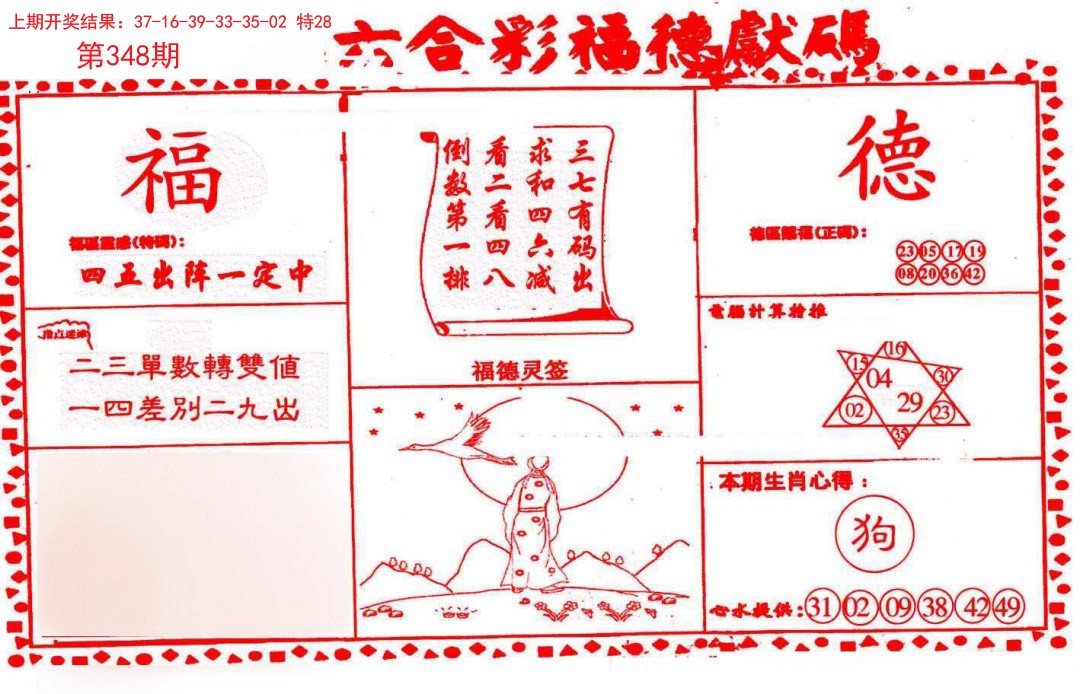 上期开奖结果：37-16-39-33-35-02 特28
第348期
六合彩福德獻碼
福
福區靈感(特碼)：
四五出阵一定中
二三單數轉雙値
一四差別二九出
三七有码出
求和四六减
看二看四八
倒数第一排
福德灵签
德
德區賜福(正碼)：
23 05 17 19
08 20 36 42
電腦計算特推
16
15
30
04
29
02
23
35
本期生肖心得：
狗
心水提供：31 02 09 38 42 49